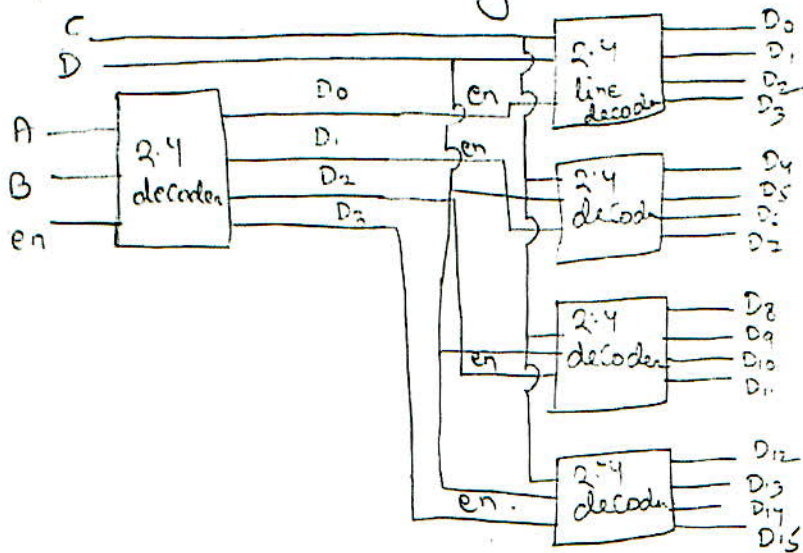 C
D
A
B
en
2:4
decoder
D0
D1
D2
D3
en
en
en
en.
2:4
line
decoder
D0
D1
D2
D3
2:4
decoder
D4
D5
D6
D7
2:4
decoder
D8
D9
D10
D11
2:4
decoder
D12
D13
D14
D15